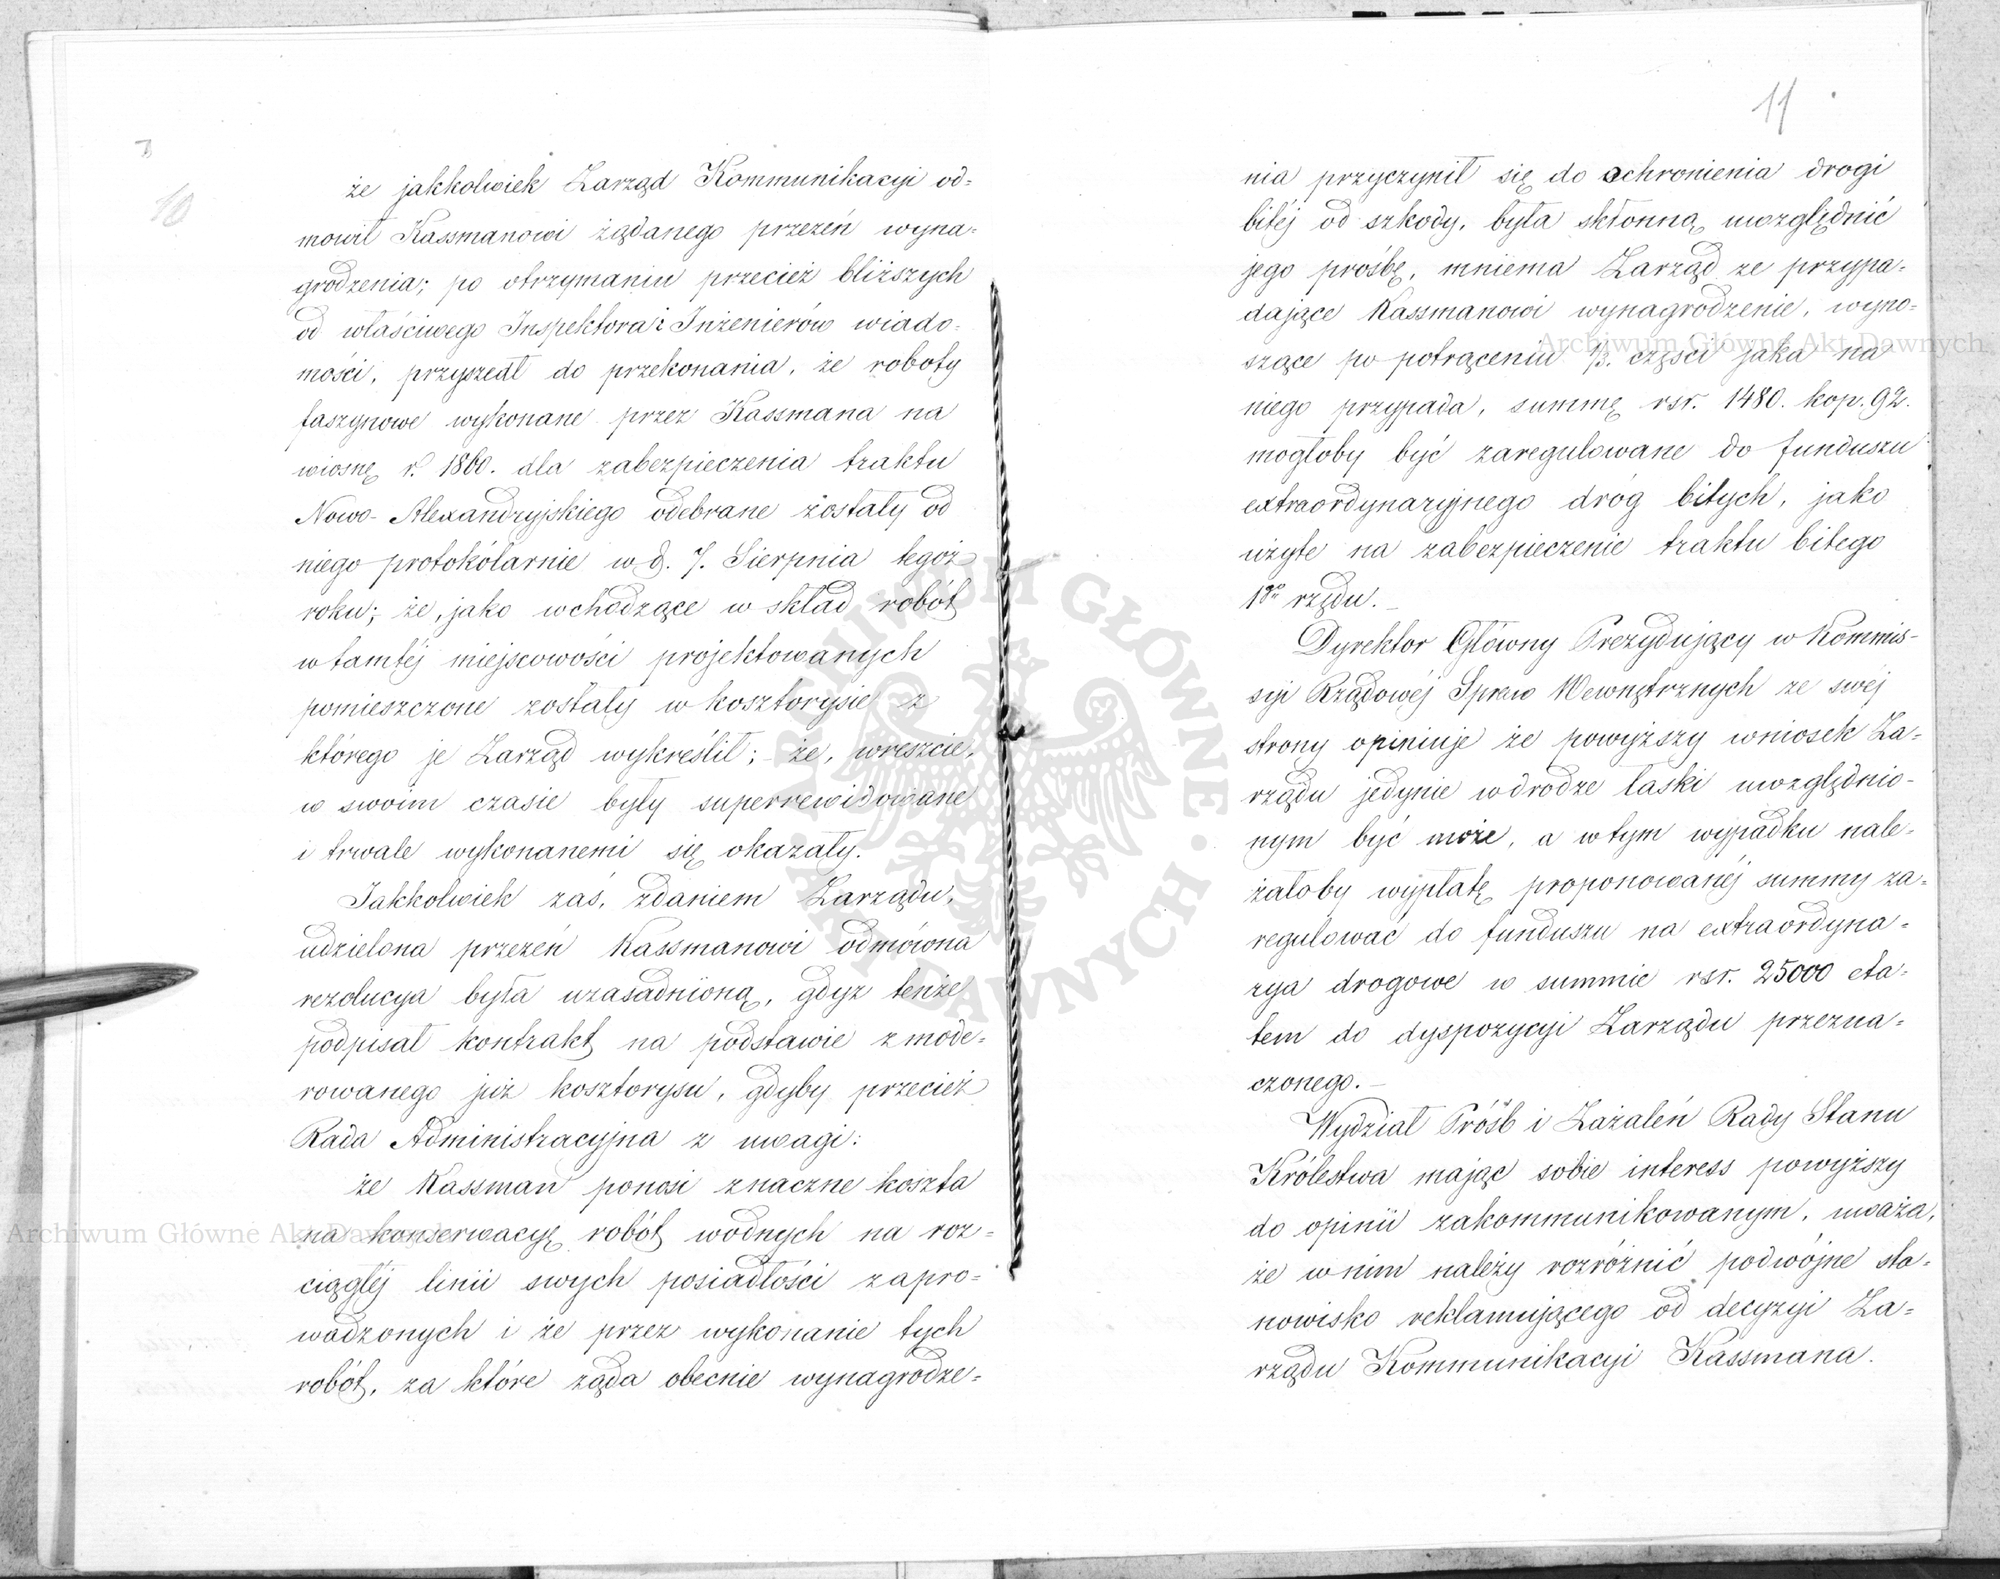 10
że jakkolwiek Zarząd Kommunikacyi od=
mowił Kassmanowi żądanego przezeń wyna=
grodzenia; po otrzymaniu przecież bliższych
od właściwego Inspektora i Inżenierów wiado=
mości, przyszedł do przekonania, że roboty
faszynowe wykonane przez Kassmana na
wiosnę r. 1860. dla zabezpieczenia traktu
Nowo-Alexandryjskiego odebrane zostały od
niego protokólarnie w d. 7. Sierpnia tegoż
roku; że, jako wchodzące w skład robót
w tamtéj miejscowości projektowanych
pomieszczone zostały w kosztorysie z
którego je Zarząd wykreślił; - że, wreszcie,
w swoim czasie były superrewidowane
i trwale wykonanemi się okazały.
Jakkolwiek zaś, zdaniem Zarządu,
udzielona przezeń Kassmanowi odmówna
rezolucya była uzasadnioną, gdyż tenże
podpisał kontrakt na podstawie zmode=
rowanego już kosztorysu, gdyby przecież
Rada Administracyjna z uwagi:
że Kassman ponosi znaczne koszta
na konserwacyę robót wodnych na roz=
ciągłéj linii swych posiadłości zapro=
wadzonych i że przez wykonanie tych
robót, za które żąda obecnie wynagrodze=
11
nia przyczynił się do ochronienia drogi
bitéj od szkody, była skłonną uwzględnić
jego prośbę, mniema Zarząd że przypa=
dające Kassmanowi wynagrodzenie, wyno=
szące po potrąceniu 1/3. części jaka na
niego przypada, summę rsr. 1480. kop. 92.
mogłoby być zaregulowane do funduszu
extraordynaryjnego dróg bitych, jako
użyte na zabezpieczenie traktu bitego
1go rzędu. -
Dyrektor Główny Prezydujący w Kommis=
syi Rządowéj Spraw Wewnętrznych ze swéj
strony opiniuje że powyższy wniosek Za=
rządu jedynie w drodze łaski uwzględnio=
nym być może, a w tym wypadku nale=
żałoby wypłatę proponowanéj summy za=
regulować do funduszu na extraordyna=
rya drogowe w summie rsr. 25000 eta=
tem do dyspozycyi Zarządu przezna=
czonego. -
Wydział Próśb i Zażaleń Rady Stanu
Królestwa mając sobie interess powyższy
do opinii zakommunikowanym, uważa,
że w nim należy rozróżnić podwójne sta=
nowisko reklamującego od decyzyi Za=
rządu Kommunikacyi Kassmana.
Archiwum Główne Akt Dawnych
Archiwum Główne Akt Dawnych
ARCHIWUM GŁÓWNE · AKT DAWNYCH ·